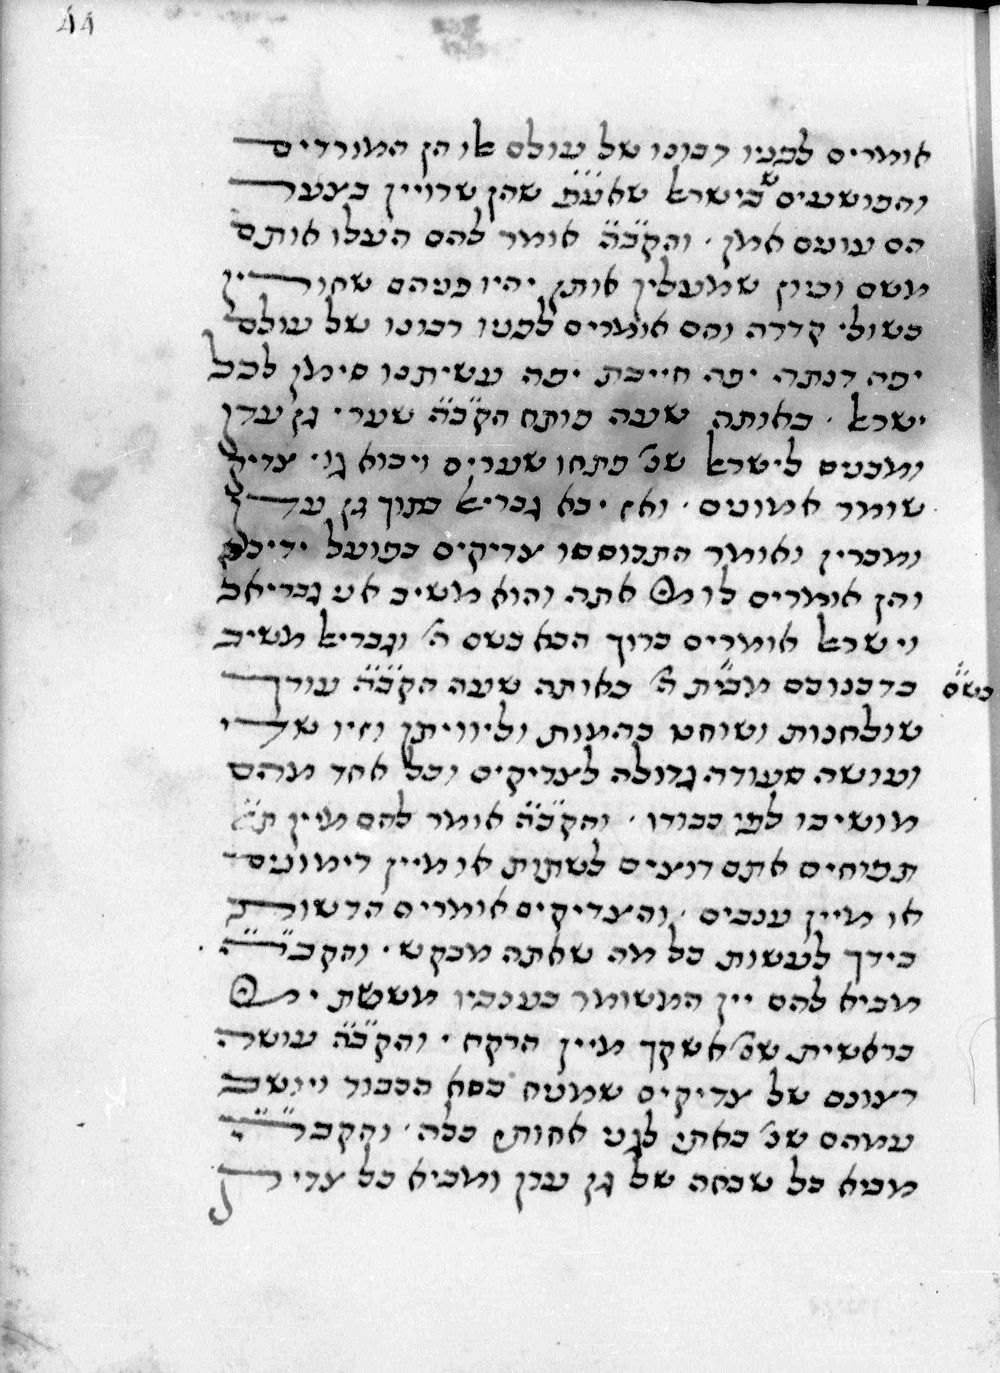 44
אומרים לפניו רבונו של עולם אלו הן המורדים
והפושעים שבישראל שאע״פ שהן שרויין בצער
הם עונים אמן · והקב״ה אומר להם העלו אותם
משם וכיון שמעלין אותן יהיו פניהם שחורין
כשולי קדרה והם אומרים לפניו רבונו של עולם
יפה דנתה יפה חייבת יפה עשיתנו סימן לכל
ישראל · באותה שעה פותח הקב״ה שערי גן עדן
ומכניס לישראל שנ׳ פתחו שערים ויבוא גוי צדיק
שומר אמונים · ואז יבא גבריאל בתוך גן עדן
ומכריז ואומר התכוססו צדיקים כפועל ידיכם
והן אומרים לו מי אתה והוא משיב אני גבריאל
וישראל אומרים ברוך הבא בשם ה׳ וגבריאל משיב
ברכנוכם מבית ה׳ באותה שעה הקב״ה עורך
שולחנות ושוחט בהמות ולויתן וזיו שדי
ועושה סעודה גדולה לצדיקים וכל אחד מהם
מושיבו לפי כבודו · והקב״ה אומר להם מיין
תפוחים אתם רוצים לשתות או מיין רימונים
או מיין ענבים · והצדיקים אומרים הרשות
בידך לעשות כל מה שאתה מבקש · והקב״ה
מביא להם יין המשומר בענביו מששת ימי
בראשית שנ׳ אשקך מיין הרקח · והקב״ה עושה
רצונם של צדיקים שמניח כסא הכבוד ויושב
עמהם שנ׳ באתי לגני אחותי כלה · והקב״ה
מביא כל שבחה של גן עדן ומביא כל צדי